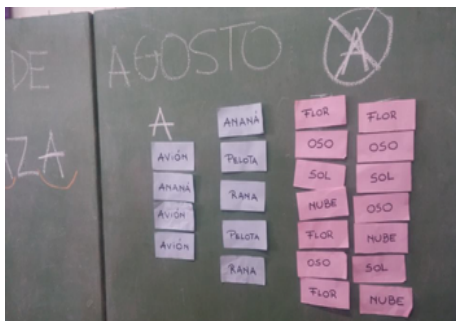 DE
ZA
AGOSTO
A
A
AVIÓN
ANANÁ
AVIÓN
AVIÓN
ANANÁ
PELOTA
RANA
PELOTA
RANA
FLOR
OSO
SOL
NUBE
FLOR
OSO
FLOR
FLOR
OSO
SOL
OSO
NUBE
SOL
NUBE